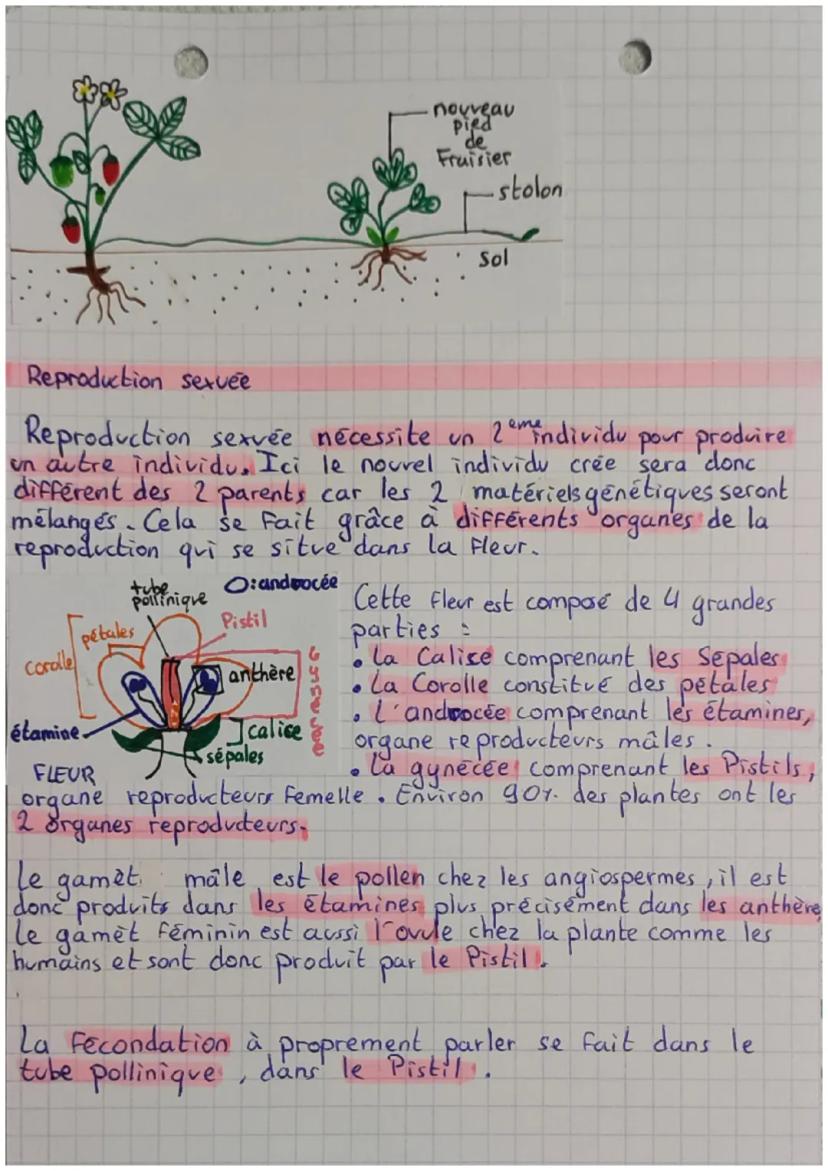 nouveau
pied
de
Fraisier
stolon
sol
Reproduction sexuée
Reproduction sexuée nécessite un 2ème individu pour produire
un autre individu. Ici le nouvel individu crée sera donc
différent des 2 parents car les 2 matériels génétiques seront
mélangés. Cela se fait grâce à différents organes de la
reproduction qui se situe dans la fleur.
tube
pollinique
O: androcée
Pistil
pétales
corolle
anthère
Gynécée
étamine
calice
sépales
FLEUR
Cette fleur est composé de 4 grandes
parties :
• La Calice comprenant les Sépales
• La Corolle constitué des pétales
• L'androcée comprenant les étamines,
organe reproducteurs mâles.
• La gynécée comprenant les Pistils,
organe reproducteurs femelle. Environ 90% des plantes ont les
2 organes reproducteurs.
Le gamèt mâle est le pollen chez les angiospermes, il est
donc produits dans les étamines plus précisément dans les anthère
Le gamèt féminin est aussi l'ovule chez la plante comme les
humains et sont donc produit par le Pistil.
La Fécondation à proprement parler se fait dans le
tube pollinique, dans le Pistil.